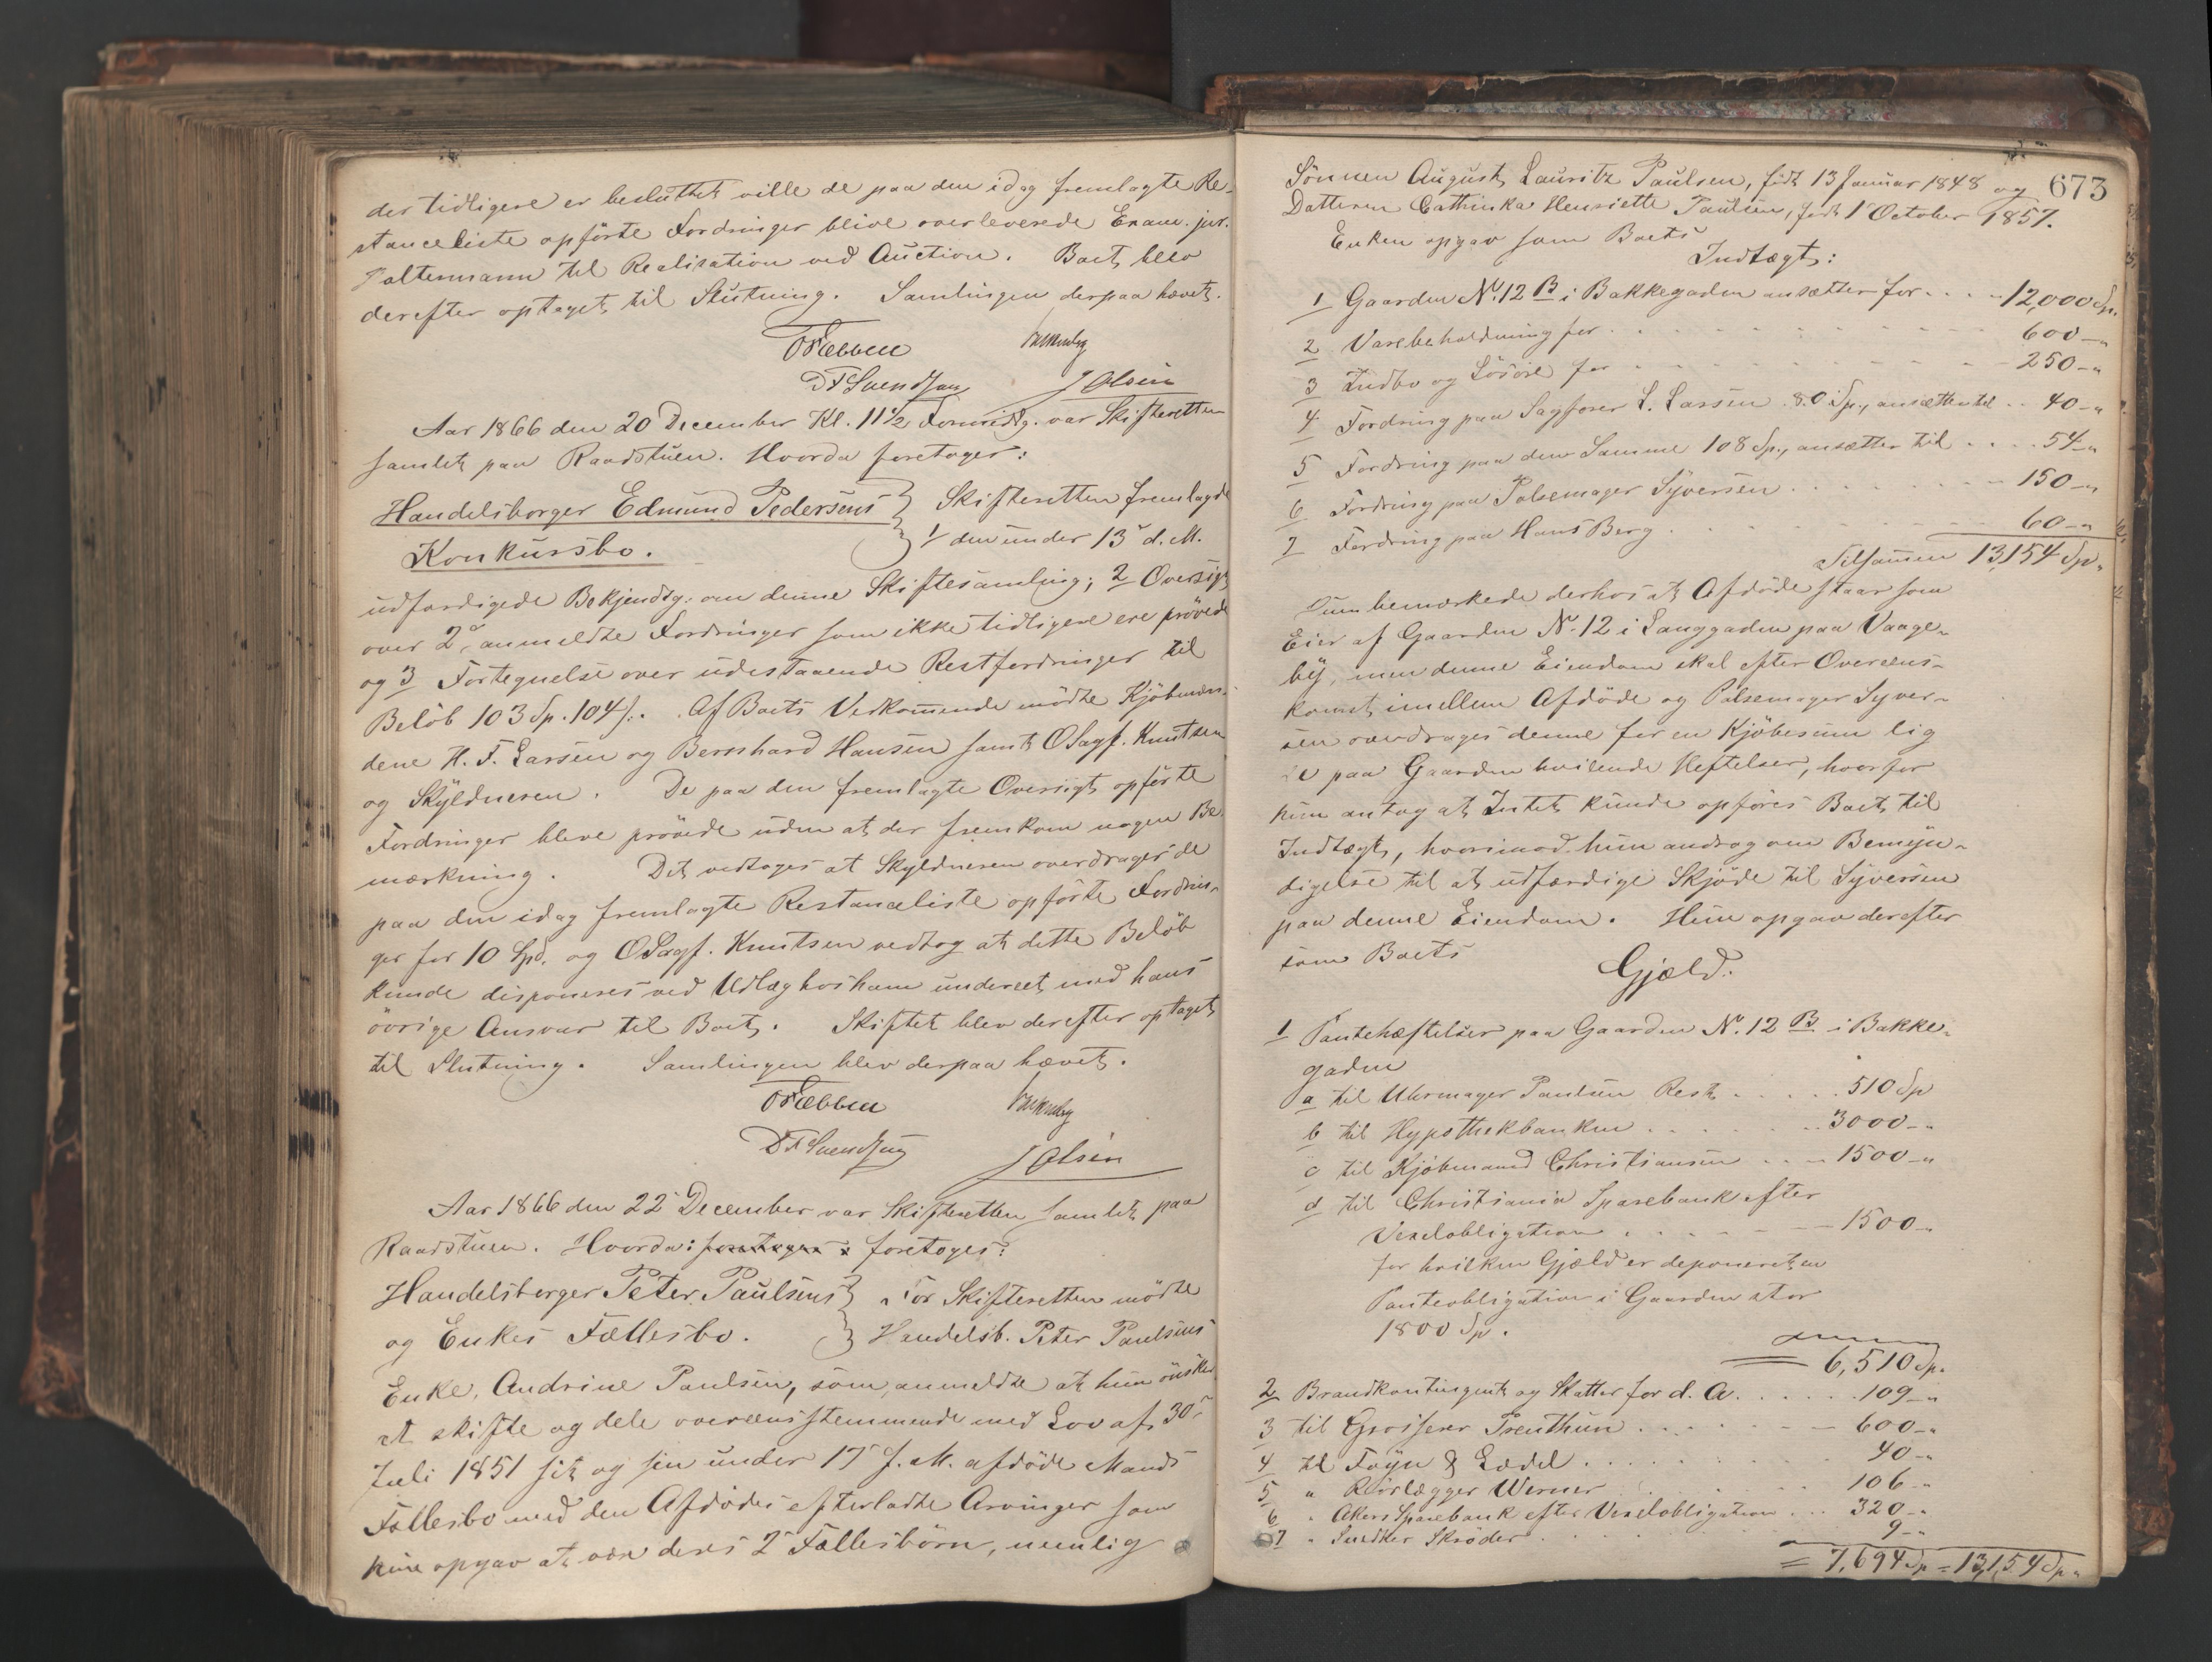 der tidligere er besluttet ville de paa den idag fremlagte Re-
stanceliste opførte Fordringer blive overleverede Exam. jur.
Poltermann til Realisation ved Auction. Boet blev
derefter optaget til Slutning. Samlingen derpaa hævet.
D F Svendsen J Olsen
Aar 1866 den 20 December Kl. 11 1/2 Formidg. var Skifteretten
samlet paa Raadstuen. Hvorda foretoges:
Handelsborger Edmund Pedersens } Skifteretten fremlagde
Konkursbo. } 1/ den under 13 d. M.
udfærdigede Bekjendtg. om denne Skiftesamling; 2 Oversigt
over 2de anmeldte Fordringer som ikke tidligere ere prøvede
og 3 Fortegnelse over udestaaende Restfordringer til
Beløb 103 Sp. 104 s. Af Boets Vedkommende mødte Kjøbmæn-
dene H. F. Larsen og Bernhard Hansen samt OSagf. Knutsen
og Skyldneren. De paa den fremlagte Oversigt opførte
Fordringer bleve prøvede uden at der fremkom nogen Be-
mærkning. Det vedtoges at Skyldneren overdrages de
paa den idag fremlagte Restanceliste opførte Fordrin-
ger for 10 Spd. og OSagf. Knutsen vedtog at dette Beløb
kunde disponeres ved Udlæg hos ham underet med hans
øvrige Ansvar til Boet. Skiftet blev derefter optaget
til Slutning. Samlingen blev derpaa hævet.
D F Svendsen J Olsen
Aar 1866 den 22 December var Skifteretten samlet paa
Raadstuen. Hvorda: foretoges: foretoges:
Handelsborger Peter Paulsens } For Skifteretten mødte
og Enkes Fællesbo. } Handelsb. Peter Paulsens
Enke, Andrine Paulsen, som anmeldte at hun ønsker
at skifte og dele overeensstemmende med Lov af 30
Juli 1851 sit og sin under 17 f. M. afdøde Mands
Fællesbo med den Afdødes efterladte Arvinger som
hun opgav at være deres 2 Fællesbørn, nemlig
673
Sønnen August Lauritz Paulsen, født 13 Januar 1848 og
Datteren Cathinka Henriette Paulsen, født 1 October 1857.
Enken opgav som Boets
Indtægt:
1 Gaarden No. 12 B i Bakkegaden ansætter for .... 12,000 Sp.
2 Varebeholdning for .... 600 - "
3 Indbo og Løsøre for .... 250 - "
4 Fordring paa Sagfører L. Larsen 80 Sp., ansættes til .. 40 - "
5 Fordring paa den Samme 108 Sp., ansætter til .... 54 - "
6 Fordring paa Pølsemager Syversen .... 150 - "
7 Fordring paa Hans Berg .... 60 - "
Tilsammen 13,154 Sp.
Hun bemærkede derhos at Afdøde staar som
Eier af Gaarden No. 12 i Langgaden paa Vaage-
by, men denne Eiendom skal efter Overeens-
komst imellem Afdøde og Pølsemager Syver-
sen overdrages denne for en Kjøbesum lig
de paa Gaarden hvilende Heftelser, hvorfor
hun antog at Intet kunde opføres Boet til
Indtægt, hvorimod hun androg om Bemyn-
digelse til at udfærdige Skjøde til Syversen
paa denne Eiendom. Hun opgav derefter
som Boets
Gjæld:
1 Pantehæftelser paa Gaarden No. 12 B i Bakke-
gaden
a til Uhrmager Paulsen Rest .... 510 Sp
b til Hypothekbanken .... 3000 - "
c til Kjøbmand Christiansen .... 1500 - "
d til Christiania Sparebank efter
Vexelobligation .... 1500 - "
for hvilken Gjæld er deponeret en
Panteobligation i Gaarden stor
1800 Sp.
= 6,510 Sp.
2 Brandkontingent og Skatter for d. A. .... 109 - "
3 til Grosserer Trenthun .... 600 - "
4 til Føyn & Lædel .... 40 - "
5 " Rørlægger Werner .... 106 - "
6 " Akers Sparebank efter Vexelobligation ... 320 - "
7 " Snedker Skrøder .... 9 - "
= 7,694 Sp = 13,154 Sp "